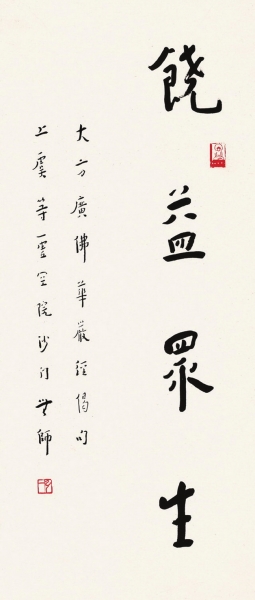 饒益眾生
大方廣佛華嚴經偈句
上虞等虛空院沙門無師